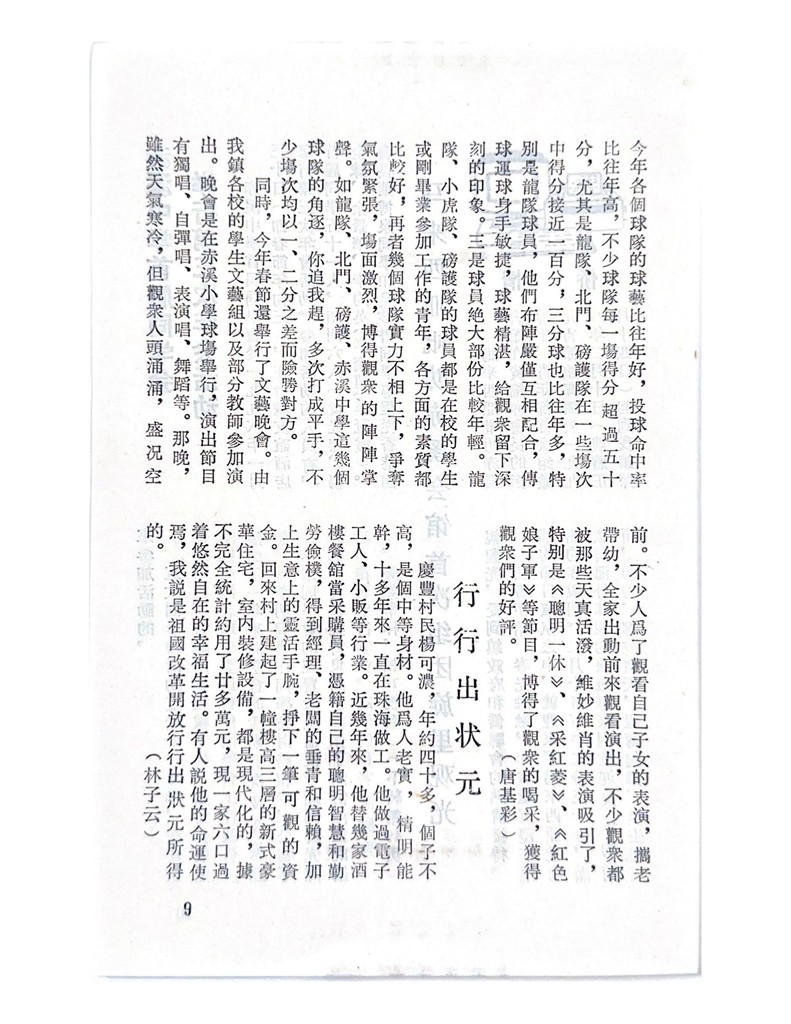 今年各個球隊的球藝比往年好，投球命中率
比往年高，不少球隊每一場得分超過五十
分，尤其是龍隊、北門、磅護隊在一些場次
中得分接近一百分，三分球也比往年多，特
別是龍隊球員，他們布陣嚴僅互相配合，傳
球運球身手敏捷，球藝精湛，給觀衆留下深
刻的印象。三是球員絶大部份比較年輕。龍
隊、小虎隊、磅護隊的球員都是在校的學生
或剛畢業參加工作的青年，各方面的素質都
比較好，再者幾個球隊實力不相上下，爭奪
氣氛緊張，場面激烈，博得觀衆的陣陣掌
聲。如龍隊、北門、磅護、赤溪中學這幾個
球隊的角逐，你追我趕，多次打成平手，不
少場次均以一、二分之差而險勝對方。
同時，今年春節還舉行了文藝晚會。由
我鎮各校的學生文藝組以及部分教師參加演
出。晚會是在赤溪小學球場舉行，演出節目
有獨唱、自彈唱、表演唱、舞蹈等。那晚，
雖然天氣寒冷，但觀衆人頭涌涌，盛况空
前。不少人爲了觀看自己子女的表演，攜老
帶幼，全家出動前來觀看演出，不少觀衆都
被那些天真活潑，維妙維肖的表演吸引了，
特别是《聰明一休》、《采紅菱》、《紅色
娘子軍》等節目，博得了觀衆的喝采，獲得
觀衆們的好評。　（唐基彩）
行行出状元
慶豐村民楊可濃，年約四十多，個子不
高，是個中等身材。他爲人老實，精明能
幹，十多年來一直在珠海做工。他做過電子
工人、小販等行業。近幾年來，他替幾家酒
樓餐舘當采購員，憑籍自己的聰明智慧和勤
勞儉樸，得到經理、老闆的垂青和信賴，加
上生意上的靈活手腕，掙下一筆可觀的資
金。回來村上建起了一幢樓高三層的新式豪
華住宅，室内裝修設備，都是現代化的，據
不完全統計約用了廿多萬元，現一家六口過
着悠然自在的幸福生活。有人説他的命運使
焉，我説是祖國改革開放行行出狀元所得
的。　（林子云）
9